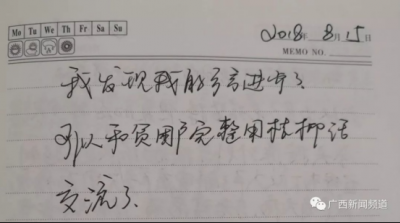 Mo Tu We Th Fr Sa Su
2018年8月15日
MEMO NO.
我发现我的方言进步了、
可以和贫困户完整用桂柳话
交流了、
广西新闻频道